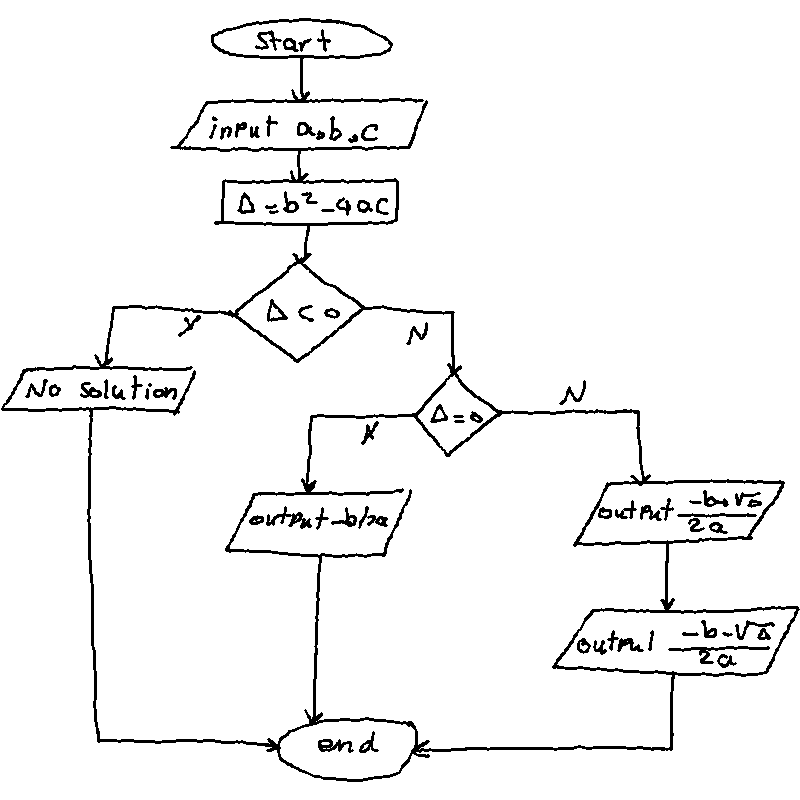 start
input a,b,c
Δ=b²-4ac
Δ<0
Y
N
No solution
Δ=0
Y
N
output -b/2a
output (-b+√Δ)/2a
output (-b-√Δ)/2a
end